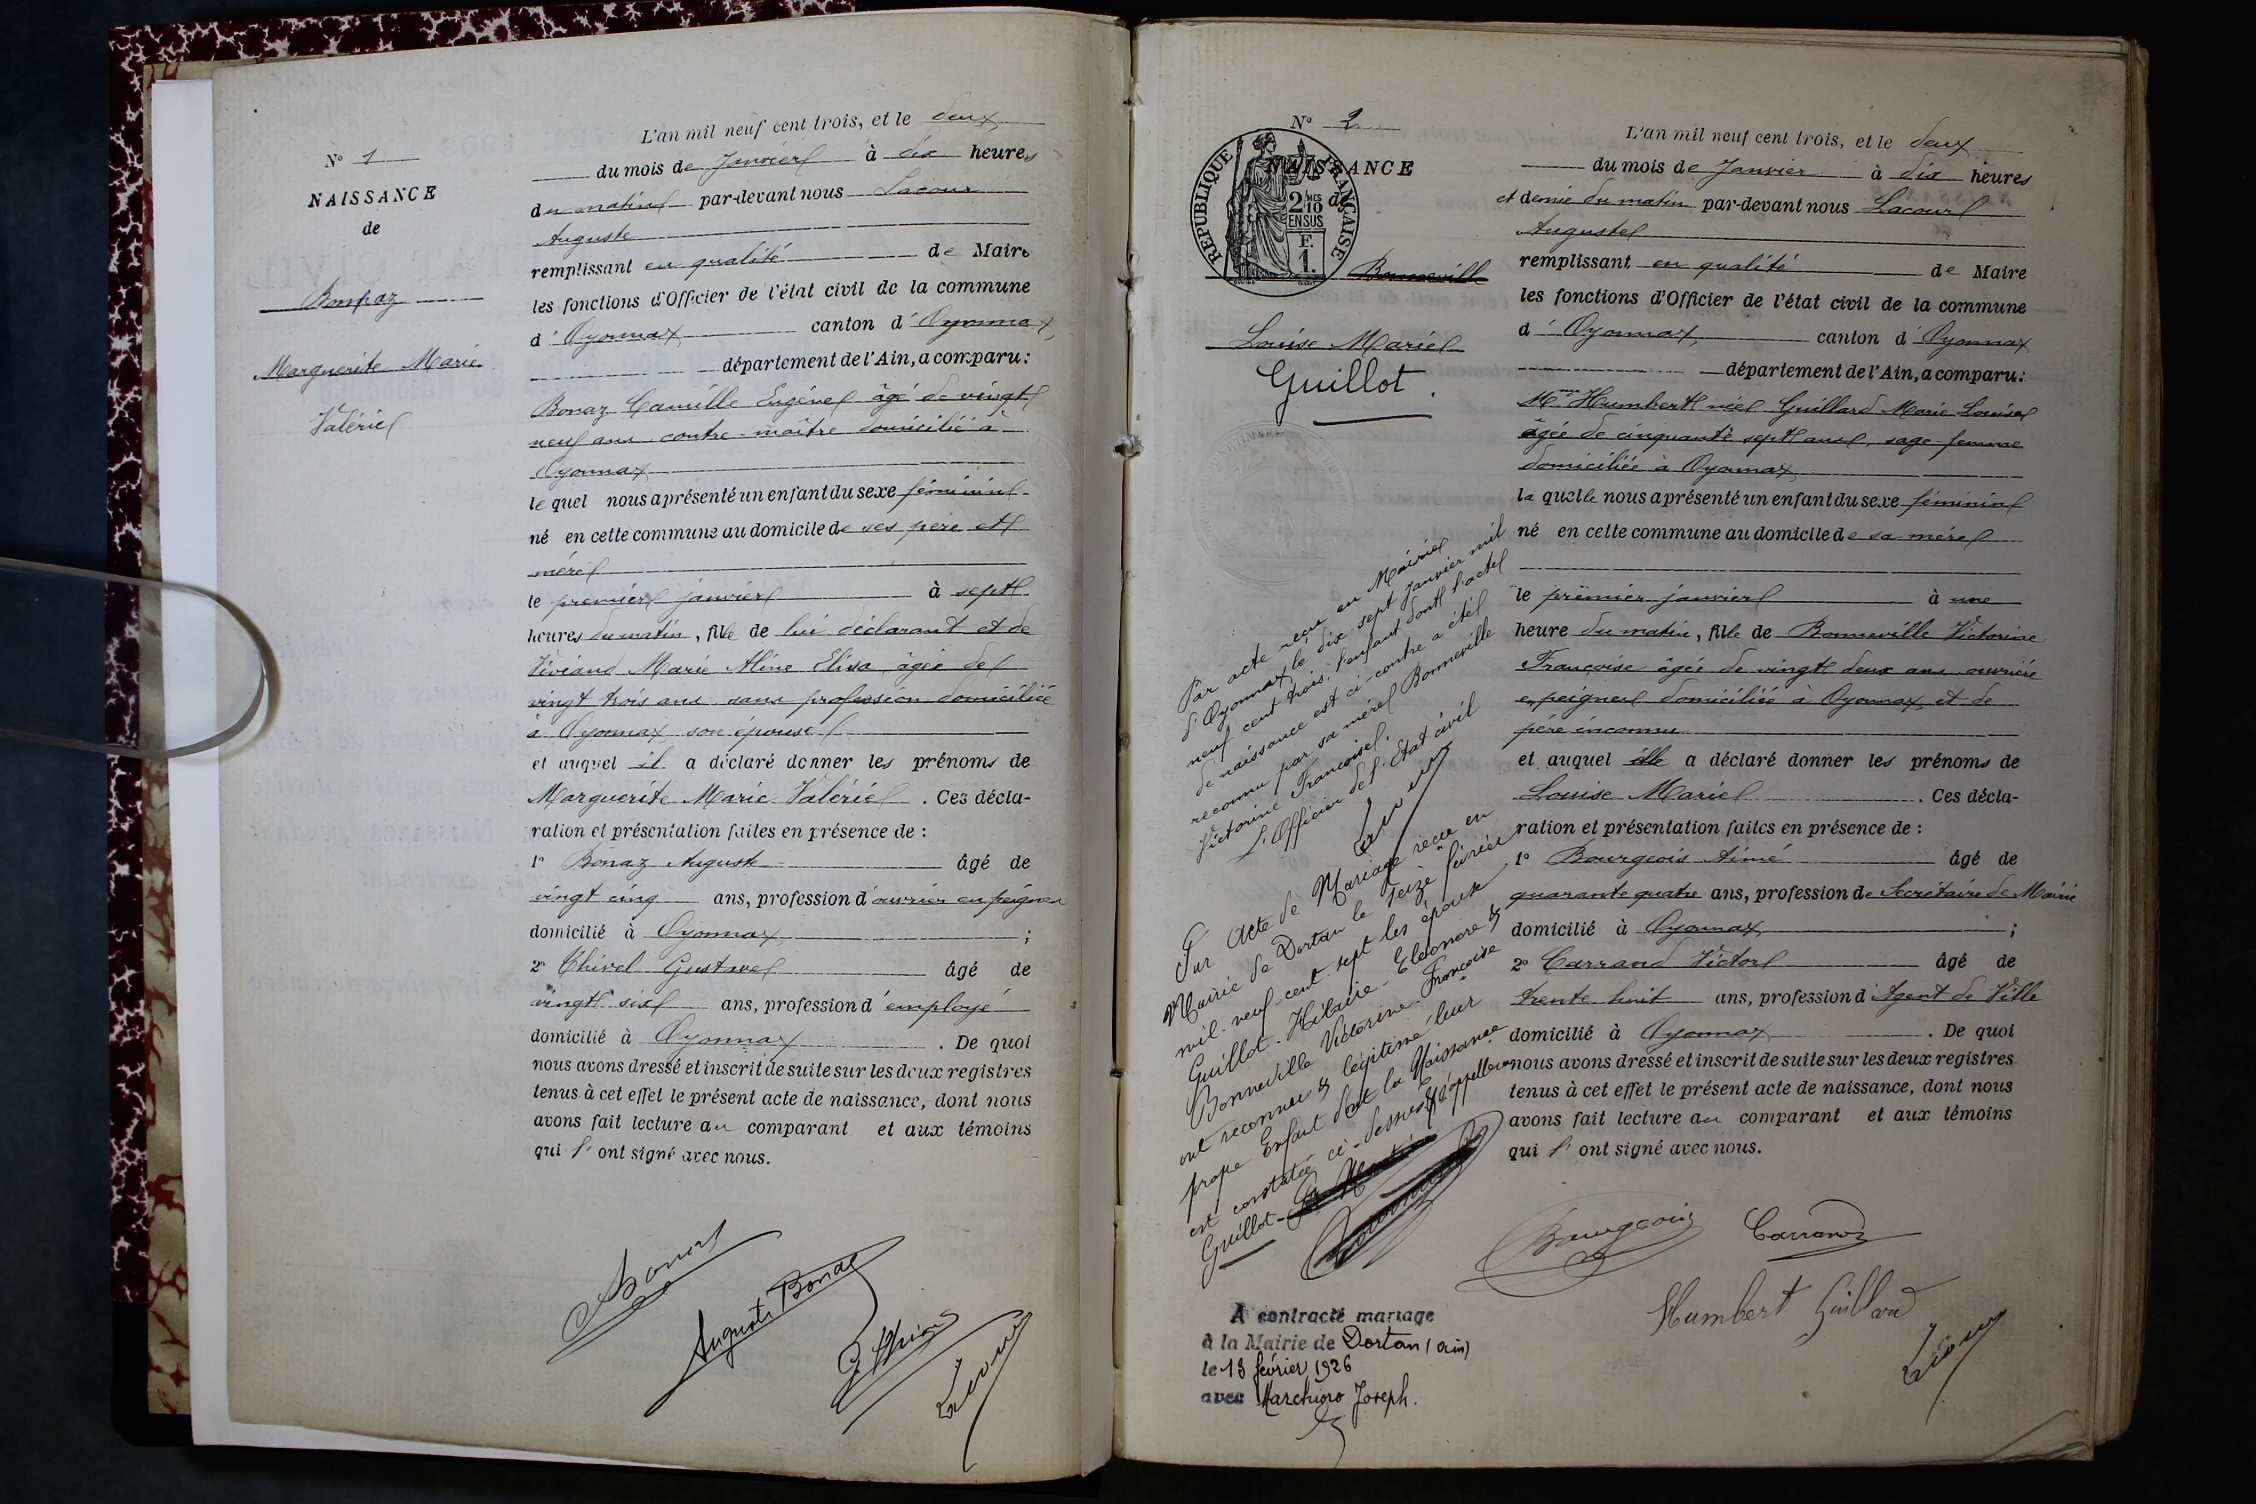 N° 1
NAISSANCE
de
Bonaz
Marguerite Marie
Valérie
L'an mil neuf cent trois, et le deux
du mois de Janvier à dix heures
du matin par-devant nous Lacour
Auguste
remplissant en qualité de Maire
les fonctions d'Officier de l'état civil de la commune
d'Oyonnax canton d'Oyonnax,
département de l'Ain, a comparu :
Bonaz Camille Eugène âgé de vingt
neuf ans contre-maître domicilié à
Oyonnax
lequel nous a présenté un enfant du sexe féminin
né en cette commune au domicile de ses père et
mère
le premier janvier à sept
heures du matin, fille de lui déclarant et de
Viviand Marie Aline Elisa âgée de
vingt trois ans sans profession domiciliée
à Oyonnax son épouse
et auquel il a déclaré donner les prénoms de
Marguerite Marie Valérie. Ces décla-
ration et présentation faites en présence de :
1° Bonaz Auguste âgé de
vingt cinq ans, profession d'ouvrier en peignes
domicilié à Oyonnax ;
2° Gustave âgé de
vingt six ans, profession d'employé
domicilié à Oyonnax. De quoi
nous avons dressé et inscrit de suite sur les deux registres
tenus à cet effet le présent acte de naissance, dont nous
avons fait lecture au comparant et aux témoins
qui l'ont signé avec nous.
Bonaz
Auguste Bonaz
N° 2
NAISSANCE
de
REPUBLIQUE FRANÇAISE
2/10 MES
EN SUS
F.
1.
Bonneville
Louise Marie
Guillot.
Par acte reçu en Mairie
d'Oyonnax le dix sept janvier mil
neuf cent trois, l'enfant dont l'acte
de naissance est ci-contre a été
reconnu par sa mère Bonneville
Victorine Françoise.
L'Officier de l'Etat civil
Par Acte de Mariage reçu en
Mairie de Dortan le seize février
mil-neuf-cent-sept les époux
Guillot-Hilaire-Eléonore &
Bonneville Victorine-Françoise
ont reconnu & légitimé leur
propre Enfant dont la Naissance
est constatée ci-dessus & s'appellera
Guillot
A contracté mariage
à la Mairie de Dortan (ain)
le 13 février 1926
avec Marchioro Joseph.
L'an mil neuf cent trois, et le deux
du mois de Janvier à dix heures
et demie du matin par-devant nous Lacour
Auguste
remplissant en qualité de Maire
les fonctions d'Officier de l'état civil de la commune
d'Oyonnax, canton d'Oyonnax
département de l'Ain, a comparu :
Mme Humbert née Guillard Marie Louise
âgée de cinquante sept ans, sage-femme
domiciliée à Oyonnax
laquelle nous a présenté un enfant du sexe féminin
né en cette commune au domicile de sa mère
le premier janvier à une
heure du matin, fille de Bonneville Victorine
Françoise âgée de vingt deux ans ouvrière
en peignes domiciliée à Oyonnax, et de
père inconnu
et auquel elle a déclaré donner les prénoms de
Louise Marie. Ces décla-
ration et présentation faites en présence de :
1° Bourgeois Aimé âgé de
quarante quatre ans, profession de Secrétaire de Mairie
domicilié à Oyonnax ;
2° Carrand Victor âgé de
trente huit ans, profession d'Agent de Ville
domicilié à Oyonnax. De quoi
nous avons dressé et inscrit de suite sur les deux registres
tenus à cet effet le présent acte de naissance, dont nous
avons fait lecture au comparant et aux témoins
qui l'ont signé avec nous.
Bourgeois Carrand
Humbert Guillard